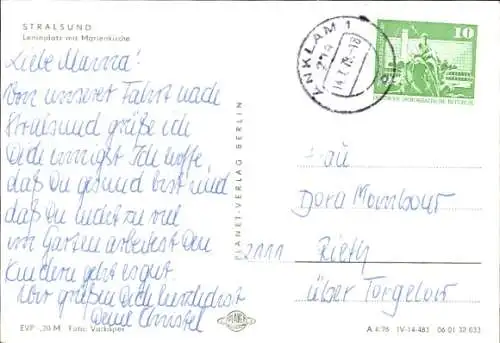 STRALSUND
Leninplatz mit Marienkirche
Liebe Mama!
Von unserer Fahrt nach
Stralsund grüße ich
Dich innigst. Ich hoffe
daß Du gesund bist und
daß Du nicht zu viel
im Garten arbeitest. Den
Kindern geht es gut.
Wir grüßen Dich herzlichst
Deine Christel
EVP -,20 M Foto: Varkaper
PLANET-VERLAG BERLIN
PLANET
ANKLAM 1
14.7.78-18
10
DEUTSCHE DEMOKRATISCHE REPUBLIK
Frau
Dora
2111 Rieth
über Torgelow
A 4/76 IV-14-483 06 01 32 033